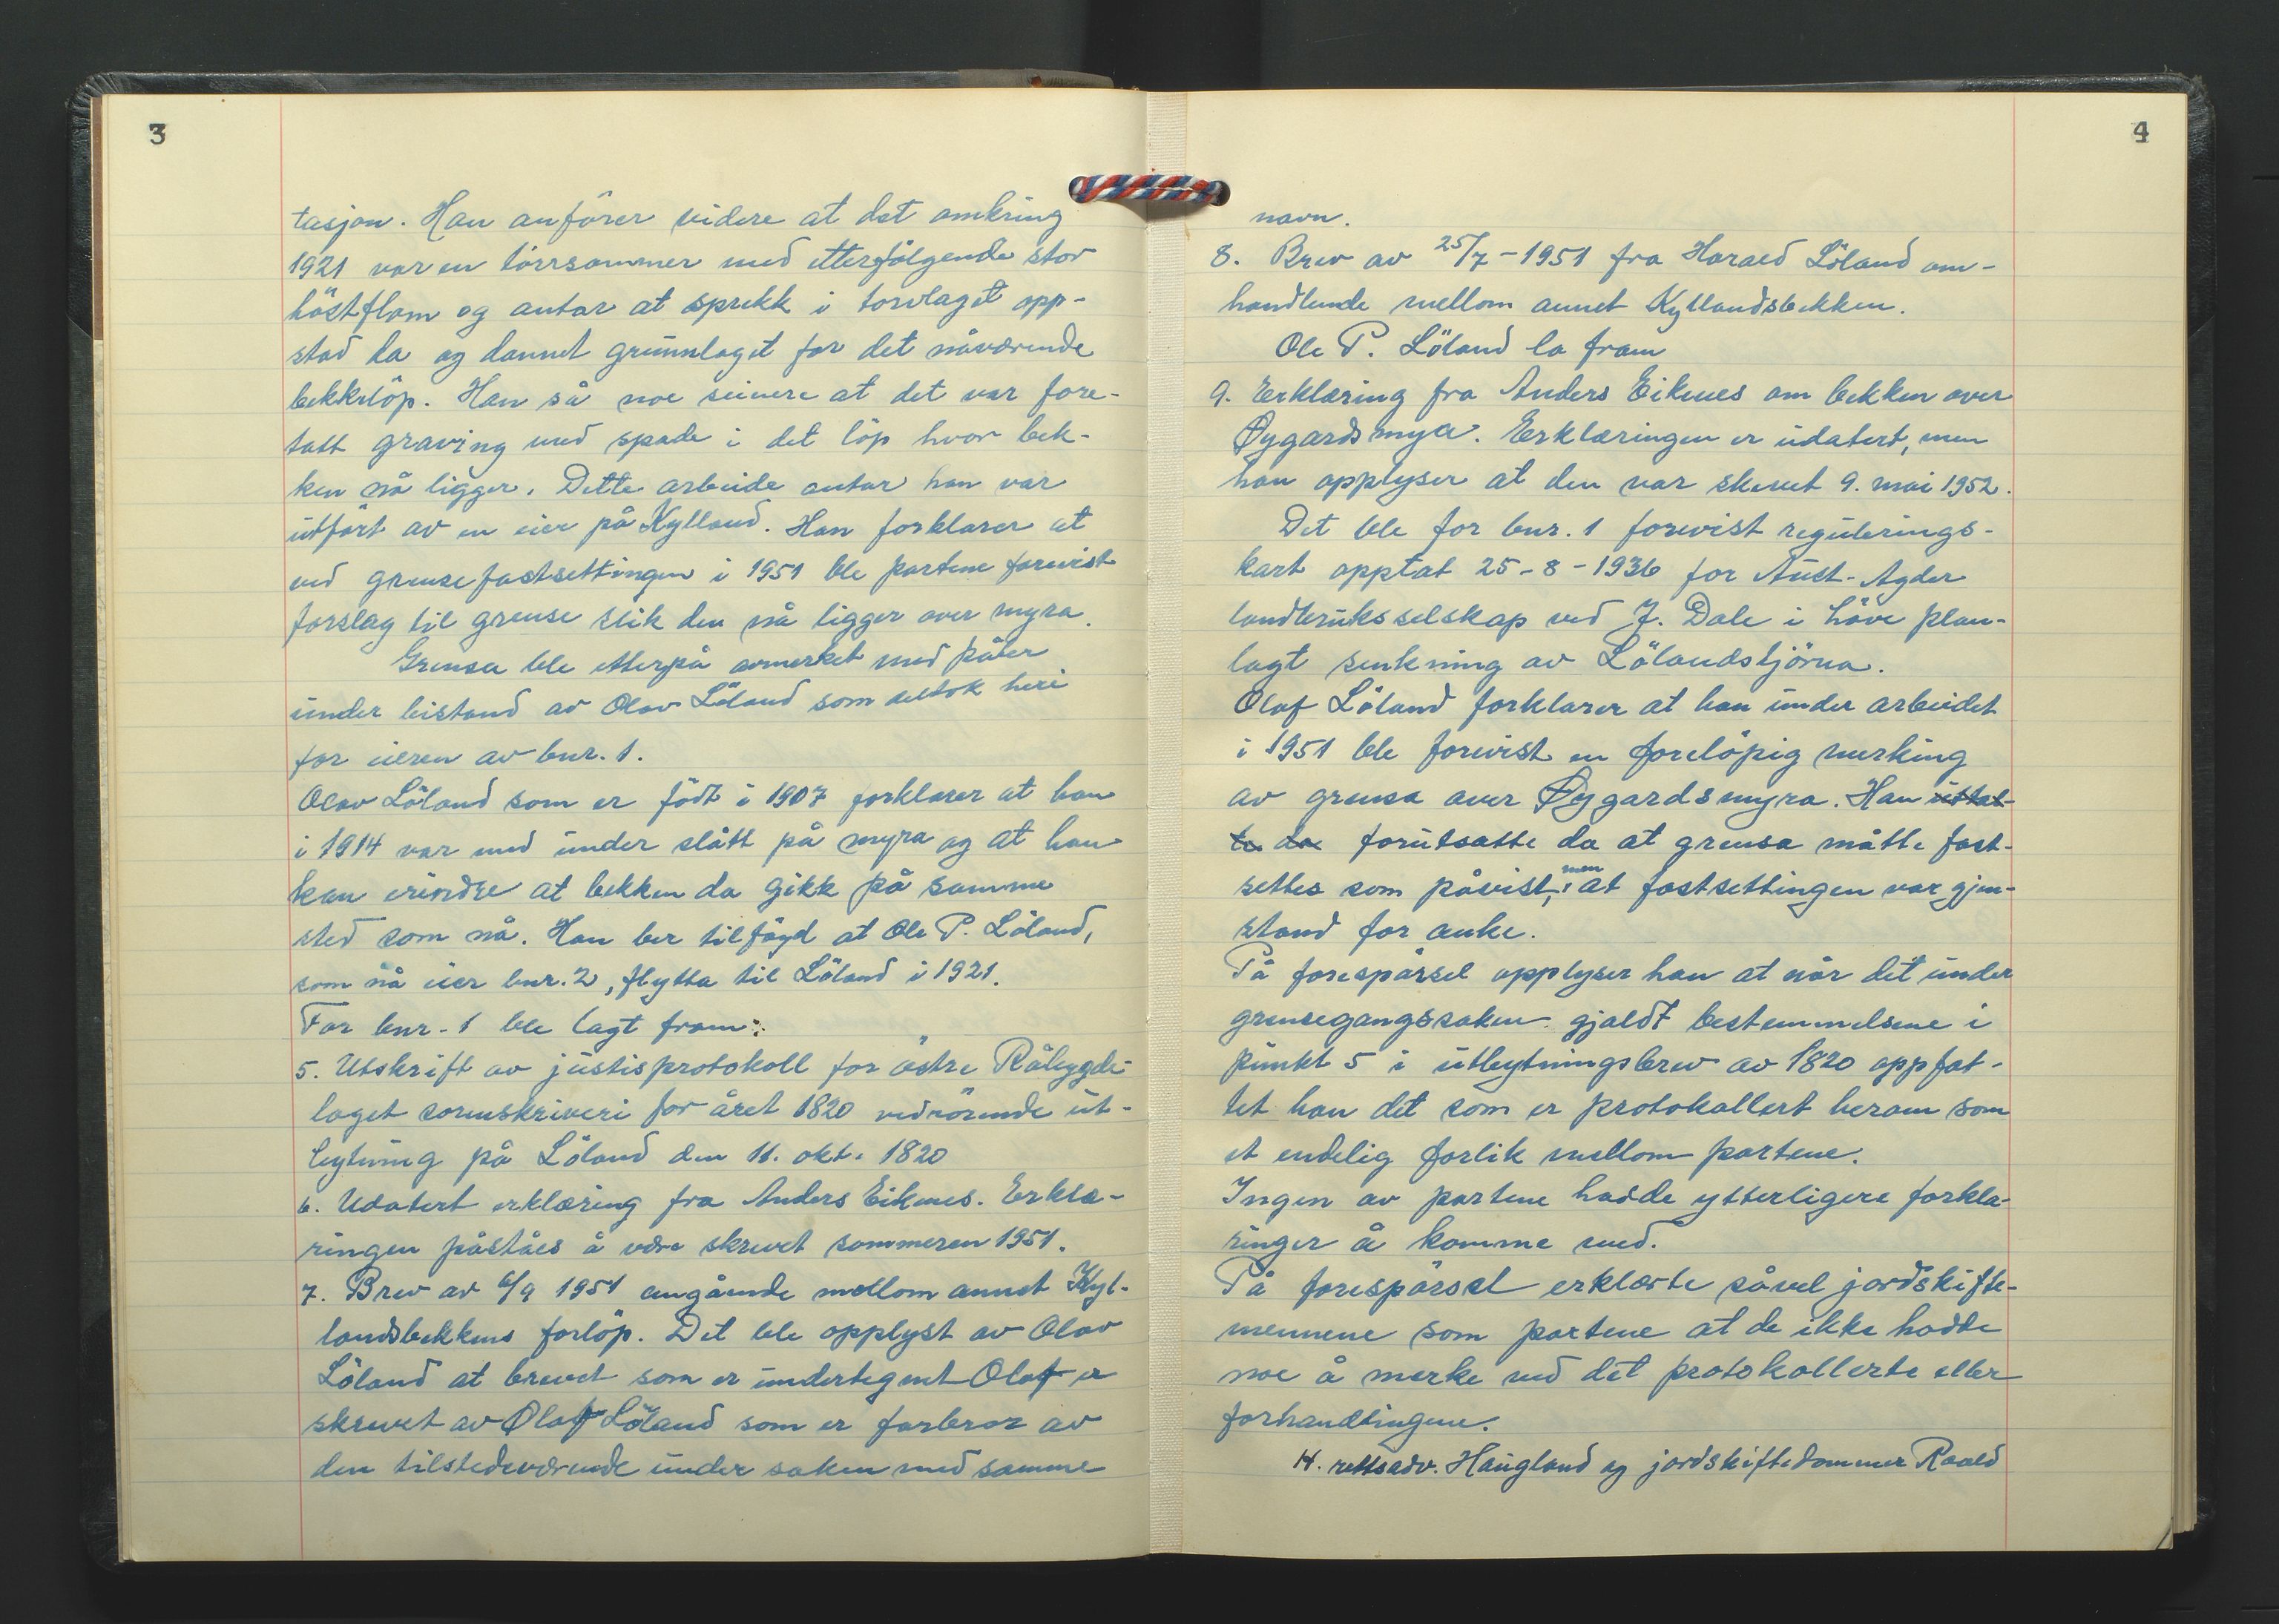 3
tasjon. Han anförer videre at det omkring
1921 var en törrsommer med etterfölgende stor
höstflom og antar at sprekk i torvlaget opp-
stod da og dannet grunnlaget for det nåværende
bekkelöp. Han så noe seinere at det var fore-
tatt graving med spade i det löp hvor bek-
ken nå ligger. Dette arbeide antar han var
utfört av en eier på Kylland. Han forklarer at
ved grensefastsettingen i 1951 ble partene forevist
forslag til grense slik den nå ligger over myra.
Grensa ble etterpå avmerket med påler
under bistand av Olav Löland som deltok heri
for eieren av bnr. 1.
Olav Löland som er född i 1907 forklarer at han
i 1914 var med under slått på myra og at han
kan erindre at bekken da gikk på samme
sted som nå. Han ber tilföyd at Ole P. Löland,
som nå eier bnr. 2, flytta til Löland i 1921.
For bnr. 1 ble lagt fram:
5. Utskrift av justisprotokoll for östre Råbygde-
laget sorenskriveri for året 1820 vedrörende ut-
bytning på Löland den 11. okt. 1820
6. Udatert erklæring fra Anders Eiknes. Erklæ-
ringen påståes å være skrevet sommeren 1951.
7. Brev av 6/9 1951 angående mellom annet Kyl-
landsbekkens forlöp. Det ble opplyst av Olav
Löland at brevet som er undertegnet Olaf er
skrevet av Olaf Löland som er farbror av
den tilstedeværende under saken med samme
4
navn.
8. Brev av 25/7-1951 fra Harald Löland om-
handlende mellom annet Kyllandsbekken.
Ole P. Löland la fram
9. Erklæring fra Anders Eiknes om bekken over
Øygardsmya. Erklæringen er udatert, men
han opplyser at den var skrevet 9. mai 1952.
Det ble for bnr. 1 forevist regulerings-
kart opptat 25-8-1936 for Aust-Agder
landbruksselskap ved J. Dale i höve plan-
lagt senkning av Lölandstjörna.
Olaf Löland forklarer at han under arbeidet
i 1951 ble forevist en forelöpig merking
av grensa over Øygardsmyra. Han uttal-
te da forutsatte da at grensa måtte fast-
settes som påvist, men at fastsettingen var gjen-
stand for anke.
På forespörsel opplyser han at når det under
grensegangssaken gjaldt bestemmelsene i
punkt 5 i utbytningsbrev av 1820 oppfat-
tet han det som er protokollert herom som
et endelig forlik mellom partene.
Ingen av partene hadde ytterligere forkla-
ringer å komme med.
På forespörsel erklærte såvel jordskifte-
mennene som partene at de ikke hadde
noe å merke ved det protokollerte eller
forhandlingene.
H. rettsadv. Haugland og jordskiftedommer Roald